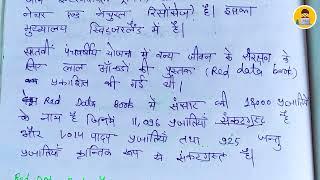 नेचर एण्ड नेचुरल रिसोर्सेज) है। इसका
मुख्यालय स्विट्जरलैंड में है।
सातवीं पंचवर्षीय योजना में वन्य जीवन के संरक्षण के
लिए लाल आँकड़ों की पुस्तक (Red data book)
प्रकाशित की गई थी।
Red Data Book में संसार की 18000 प्रजातियों
के नाम है जिनमें 11,096 प्रजातियाँ संकटग्रस्त हैं
और 1,014 पादप प्रजातियाँ तथा 925 जन्तु
प्रजातियाँ क्रान्तिक रूप से संकटग्रस्त हैं।